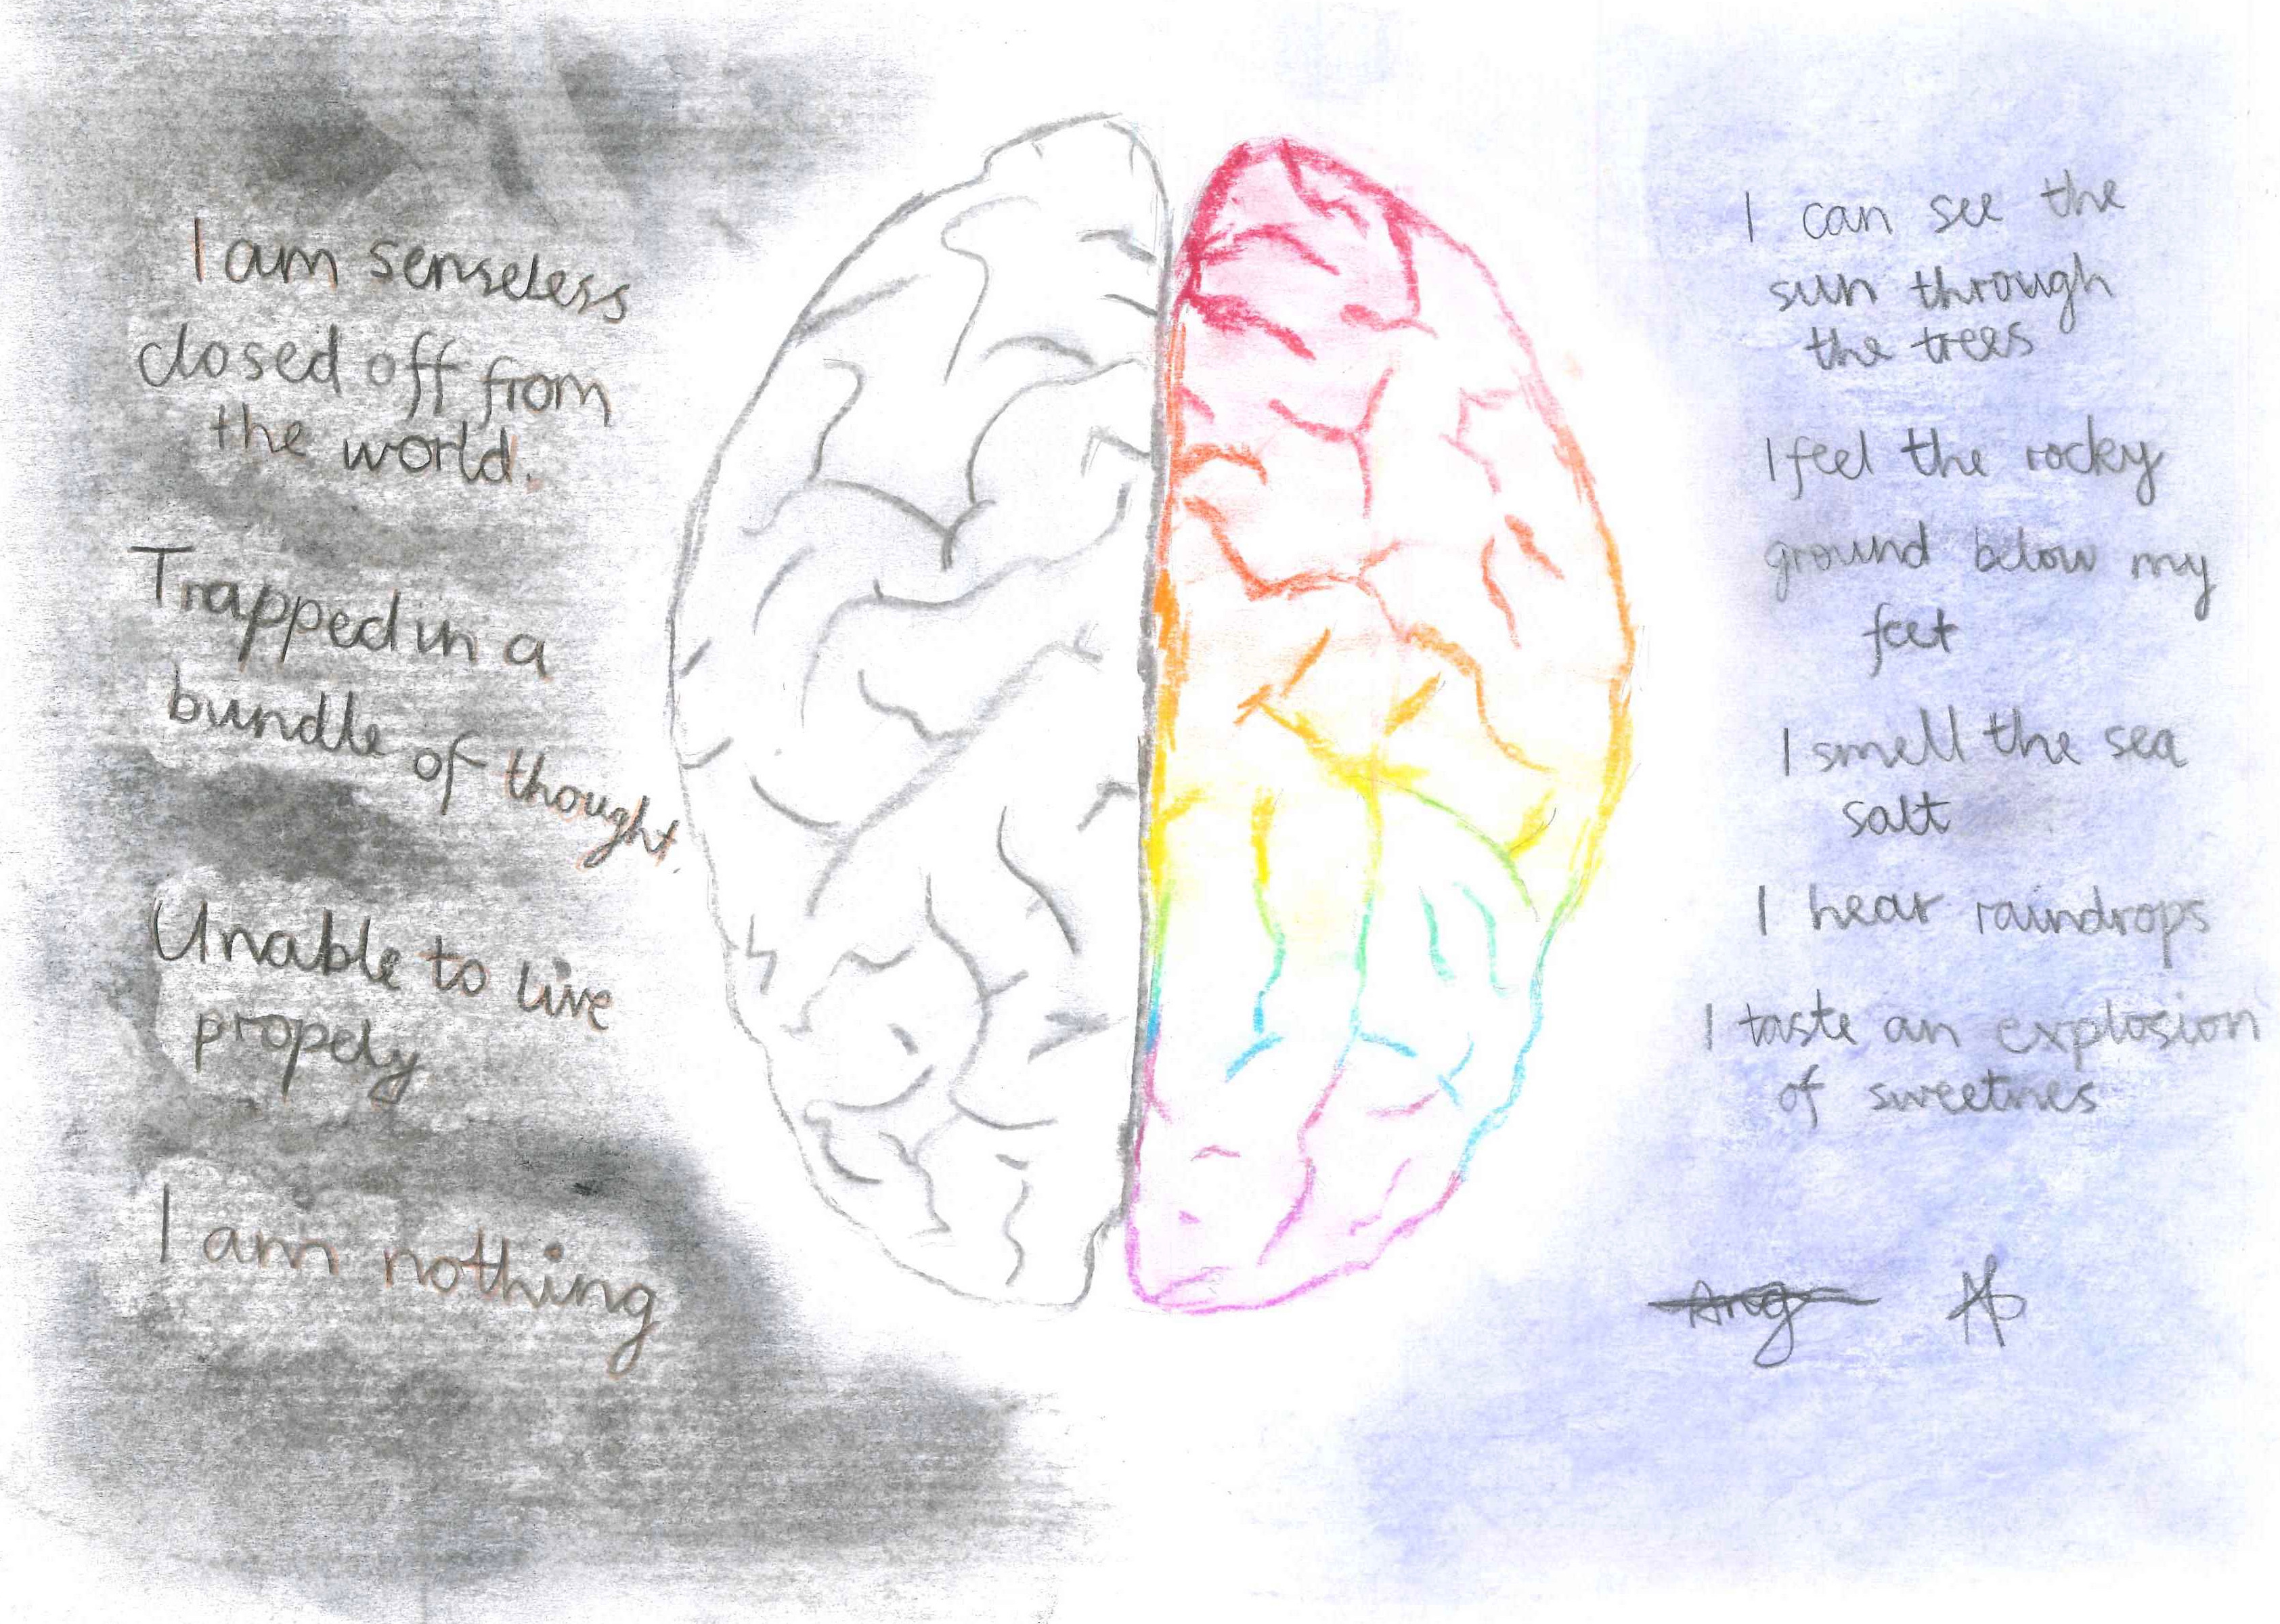 I am senseless
closed off from
the world.
Trapped in a
bundle of thought.
Unable to live
propely
I am nothing
I can see the
sun through
the trees
I feel the rocky
ground below my
feet
I smell the sea
salt
I hear raindrops
I taste an explosion
of sweetnes
Ang